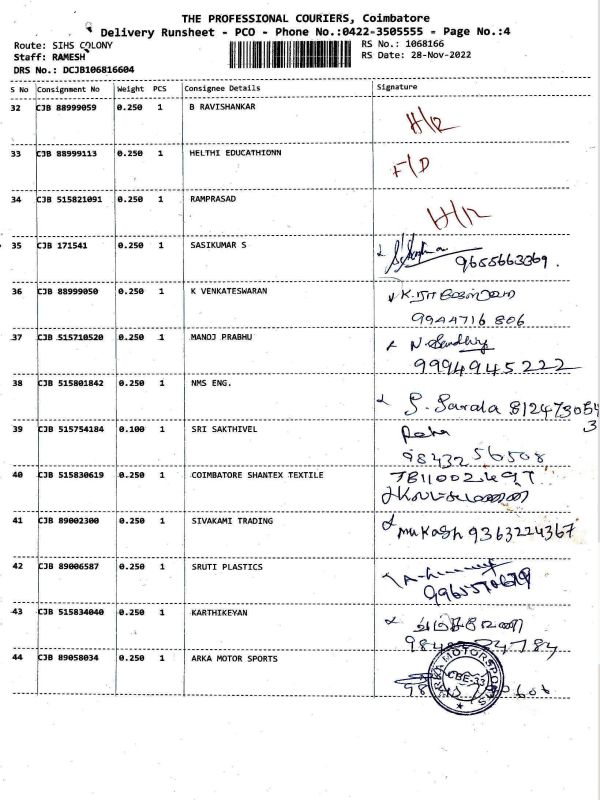 THE PROFESSIONAL COURIERS, Coimbatore
Delivery Runsheet - PCO - Phone No.:0422-3505555 - Page No.:4
Route: SIHS COLONY
Staff: RAMESH
DRS No.: DCJB106816604
RS No.: 1068166
RS Date: 28-Nov-2022
S No Consignment No Weight PCS Consignee Details Signature
32 CJB 88999059 0.250 1 B RAVISHANKAR
33 CJB 88999113 0.250 1 HELTHI EDUCATHIONN F/D
34 CJB 515821091 0.250 1 RAMPRASAD
35 CJB 171541 0.250 1 SASIKUMAR S
9655663369.
36 CJB 88999050 0.250 1 K VENKATESWARAN
9944716 806
37 CJB 515710520 0.250 1 MANOJ PRABHU N. Sandhiy
9994945222
38 CJB 515801842 0.250 1 NMS ENG.
S. Sarala 8124730543
39 CJB 515754184 0.100 1 SRI SAKTHIVEL
98432 56508
40 CJB 515830619 0.250 1 COIMBATORE SHANTEX TEXTILE
41 CJB 89002300 0.250 1 SIVAKAMI TRADING
Mukash 9363224367
42 CJB 89006587 0.250 1 SRUTI PLASTICS
43 CJB 515834040 0.250 1 KARTHIKEYAN
44 CJB 89058034 0.250 1 ARKA MOTOR SPORTS
ARKA MOTORSPORTS
CBE-33